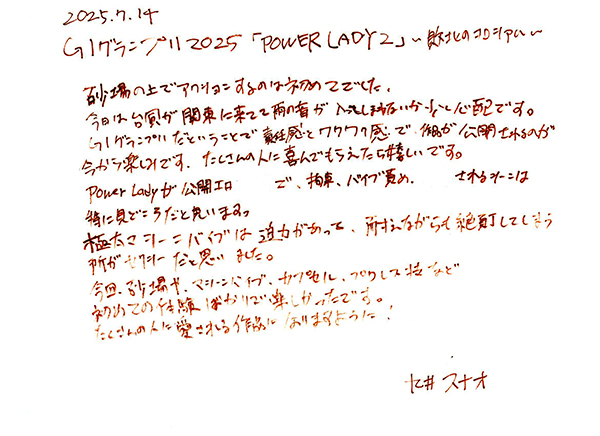 2025.7.14
G1グランプリ2025「POWER LADY 2」～敗北のコロシアム～
砂場の上でアクションするのは初めてでした。
今日は台風が関東に来てて雨の音が入ってしまわないか少し心配です。
G1グランプリだということで責任感とワクワク感で、作品が公開されるのが
今から楽しみです。たくさんの人に喜んでもらえたら嬉しいです。
Power Ladyが公開エロ で、拘束、バイブ責め、 されるシーンは
特に見どころだと思います。
極太マシーンバイブは迫力があって、耐えながらも絶叫してしまう
所がセクシーだと思いました。
今回、砂場や、マシーンバイブ、カプセル、プロレス技など
初めての体験ばかりで楽しかったです。
たくさんの人に愛される作品になりますように！
七井 スナオ